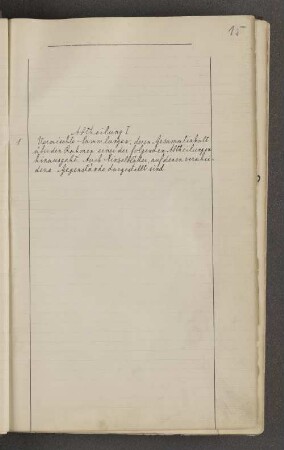 15
Abtheilung I
1 Vermischte Sammlungen, deren Gesammtinhalt
über den Rahmen einer der folgenden Abtheilungen
hinausgeht. Auch Einzelblätter, auf denen verschie-
dene Gegenstände dargestellt sind.